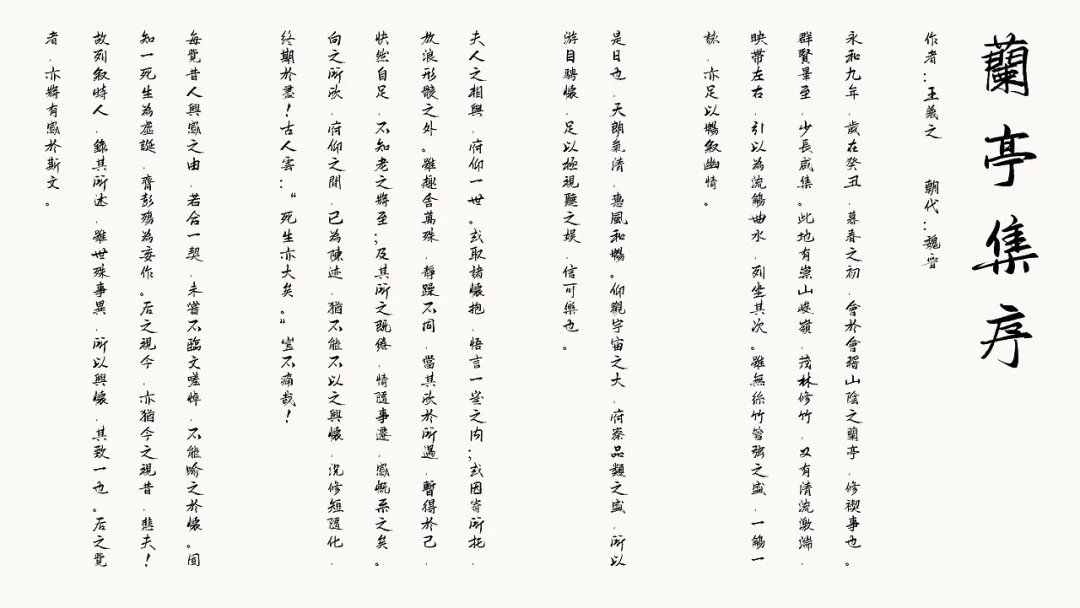 蘭亭集序
作者：王羲之 朝代：魏晉
永和九年，歲在癸丑，暮春之初，會於會稽山陰之蘭亭，修禊事也。
群賢畢至，少長咸集。此地有崇山峻嶺，茂林修竹，又有清流激湍，
映帶左右，引以為流觴曲水，列坐其次。雖無絲竹管弦之盛，一觴一
詠，亦足以暢敘幽情。
是日也，天朗氣清，惠風和暢。仰觀宇宙之大，府察品類之盛，所以
游目騁懷，足以極視聽之娛，信可樂也。
夫人之相與，府仰一世。或取諸懷抱，悟言一室之內；或因寄所托，
放浪形骸之外。雖趣舍萬殊，靜躁不同，當其欣於所遇，暫得於己，
快然自足，不知老之將至；及其所之既倦，情隨事遷，感慨系之矣。
向之所欣，府仰之間，已為陳迹，猶不能不以之興懷，況修短隨化，
終期於盡！古人雲：“死生亦大矣。”豈不痛哉！
每覽昔人興感之由，若合一契，未嘗不臨文嗟悼，不能喻之於懷。固
知一死生為虛誕，齊彭殤為妄作。后之視今，亦猶今之視昔，悲夫！
故列敘時人，錄其所述，雖世殊事異，所以興懷，其致一也。后之覽
者，亦將有感於斯文。